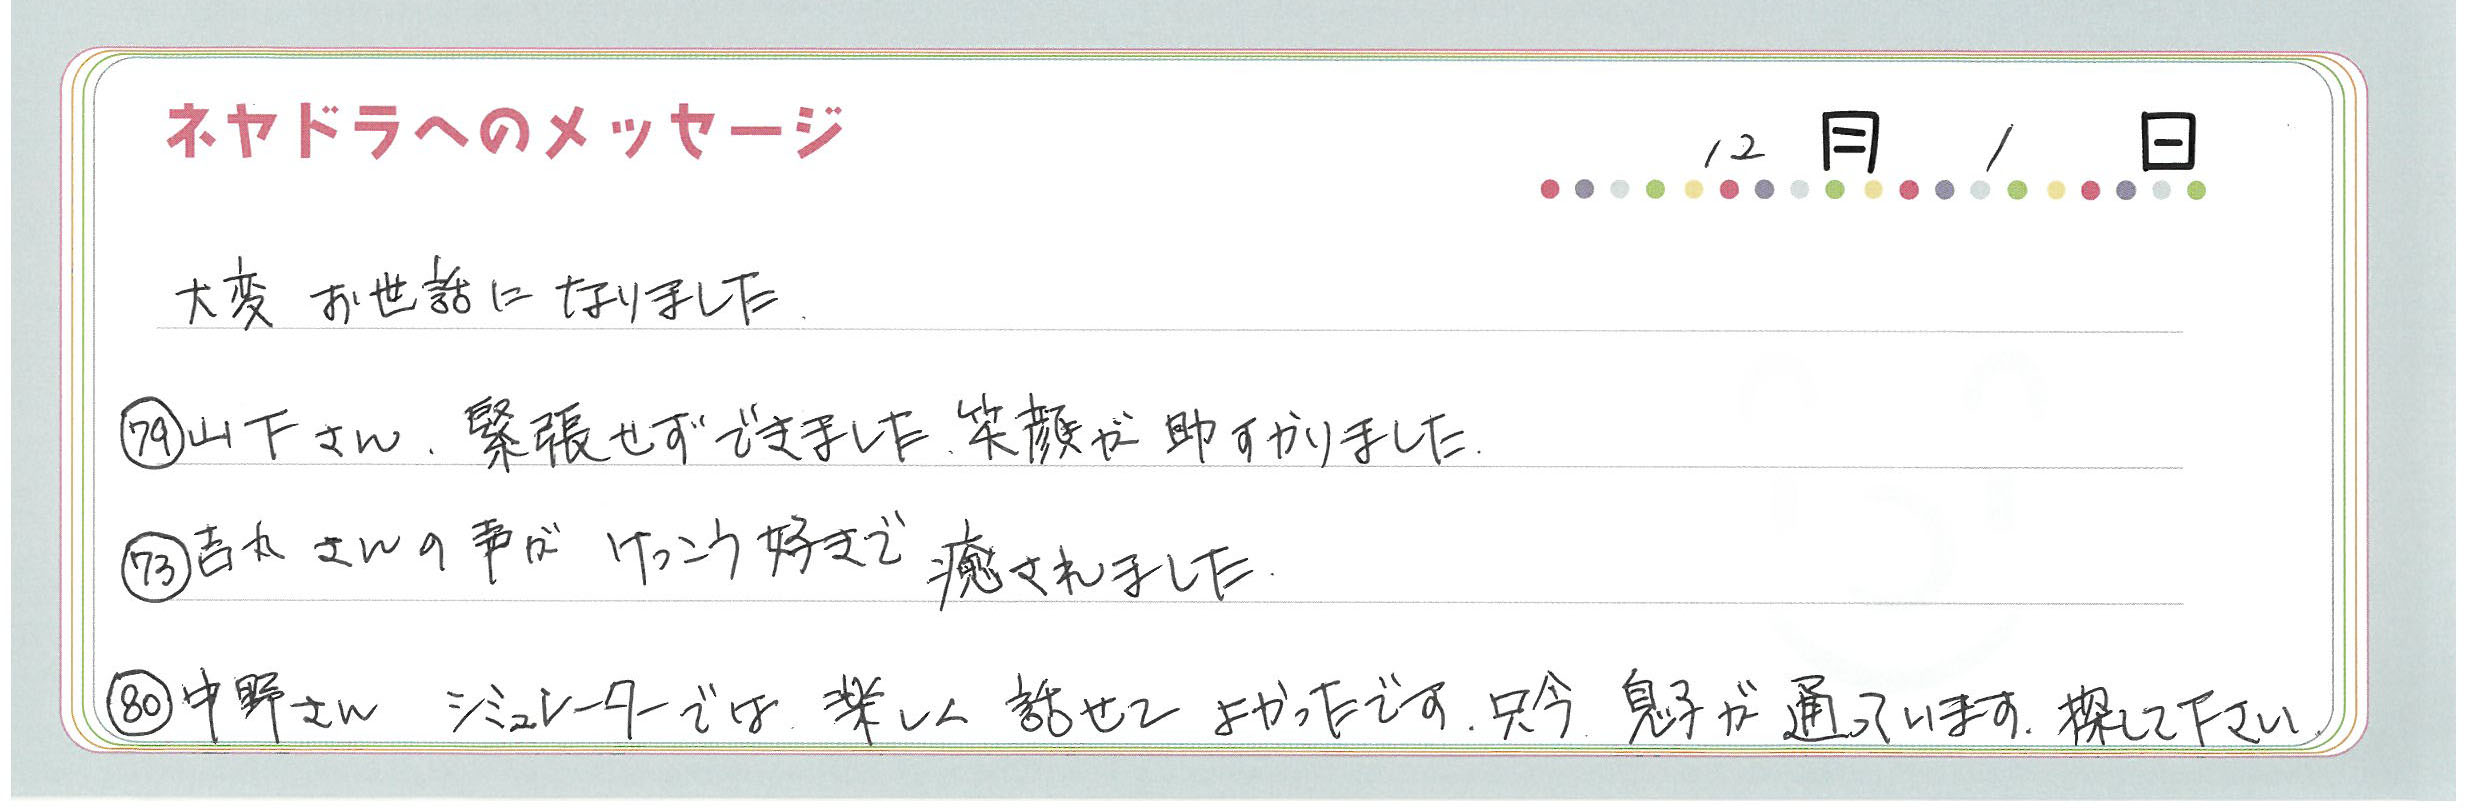 ネヤドラへのメッセージ
12月1日
大変 お世話に なりました.
㊆山下さん. 緊張せずできました. 笑顔が 助すかりました.
㊂吉丸 さんの 声が けっこう好きで 癒されました.
80中野さん シミュレーターでは 楽しく 話せて よかったです. 只今 息子が 通っています. 探して下さい.